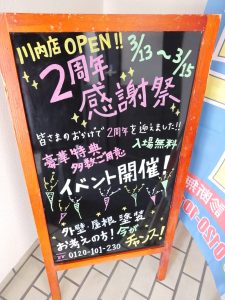 川内店 OPEN!!
3/13~3/15
2周年
感謝祭
皆さまのおかげで2周年を迎えました!!
豪華特典
多数ご用意
入場無料
イベント開催!
外壁・屋根 塗装
お考えの方!今が
チャンス!
0120-101-230